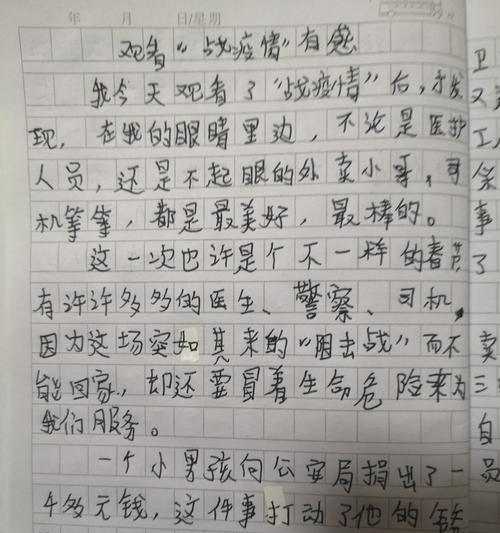 年 月 日/星期
观看“战疫情”有感
我今天观看了“战疫情”后，才发
现，在我的眼睛里边，不论是医护
人员，还是不起眼的外卖小哥，司
机等等，都是最美好，最棒的。
这一次也许是个不一样的春节
有许许多多的医生、警察、司机，
因为这场突如其来的“阻击战”而不
能回家，却还要冒着生命危险来为
我们服务。
一个小男孩向公安局捐出了一
千多元钱，这件事打动了他的
卫
又
工，
条
事
了
卖
三
自
员